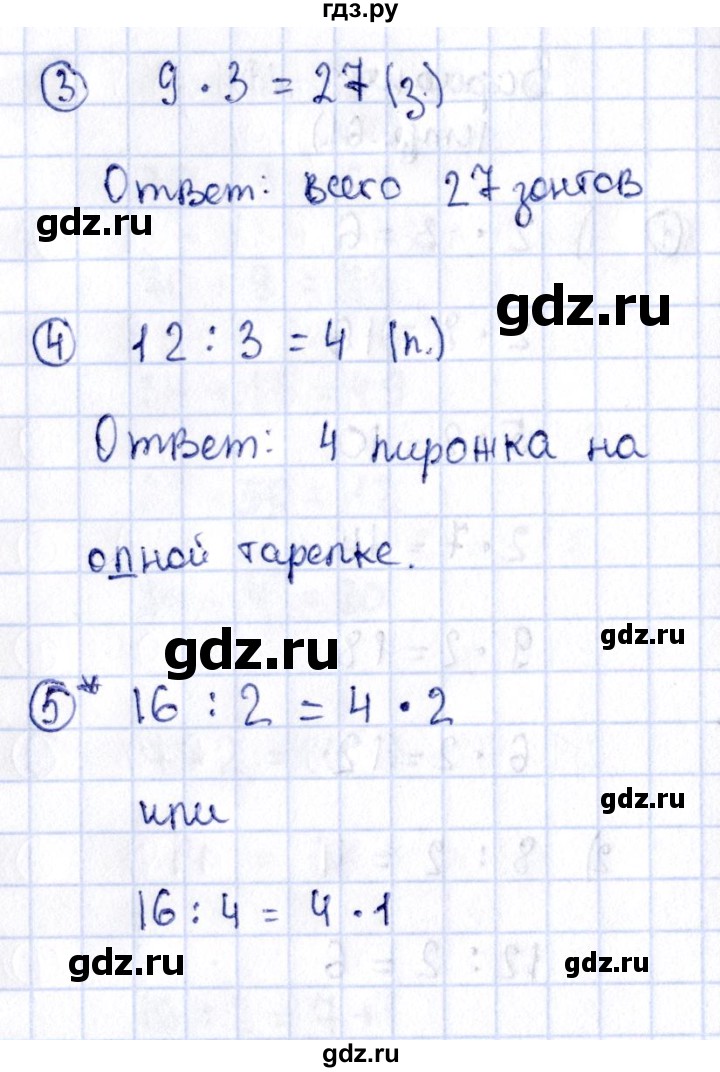 гдз.ру
③ 9 · 3 = 27 (з.)
Ответ: всего 27 зонтов
gdz.ru
gdz.ru
④ 12 : 3 = 4 (п.)
Ответ: 4 пирожка на
одной тарелке.
gdz.ru
gdz.ru
⑤* 16 : 2 = 4 · 2
или
gdz.ru
16 : 4 = 4 · 1
gdz.ru
gdz.ru
gdz.ru